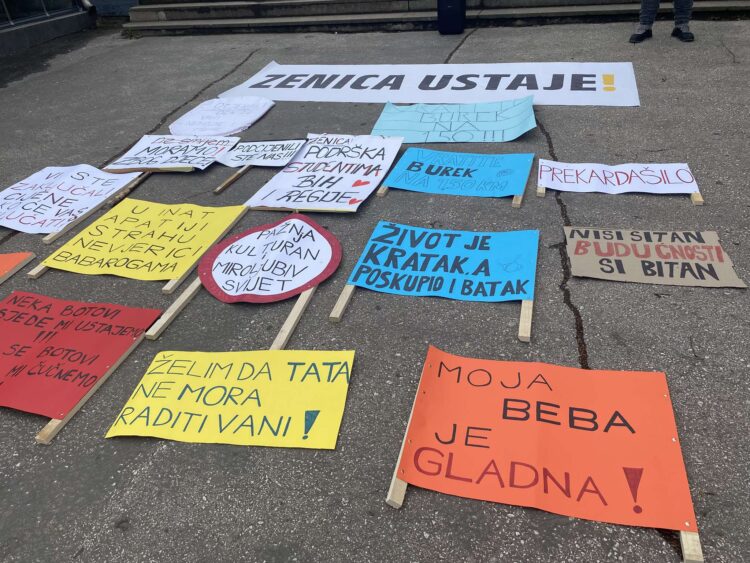 ZENICA USTAJE!
BUREK
NA
150!!!
MORAMO
PODCIJENILI
STE NAS!!!
ZENICA
PODRŠKA
STUDENTIMA
BIH
I REGIJE
BUREK
NA 150KM
PREKARDAŠILO
VI STE
ZAKLJUČALI
CIJENE
U INAT
APATIJI
STRAHU
NEVJERICI
BABAROGAMA
PAŽNJA
KULTURAN
MIROLJUBIV
SVIJET
ŽIVOT JE
KRATAK, A
POSKUPIO I BATAK
NISI SITAN
BUDUĆNOSTI
SI BITAN
NEKA BOTOVI
SJEDE MI USTAJEMO
!!!
SE BOTOVI
MI ČUČNEMO
ŽELIM DA TATA
NE MORA
RADITI VANI!
MOJA
BEBA
JE
GLADNA!